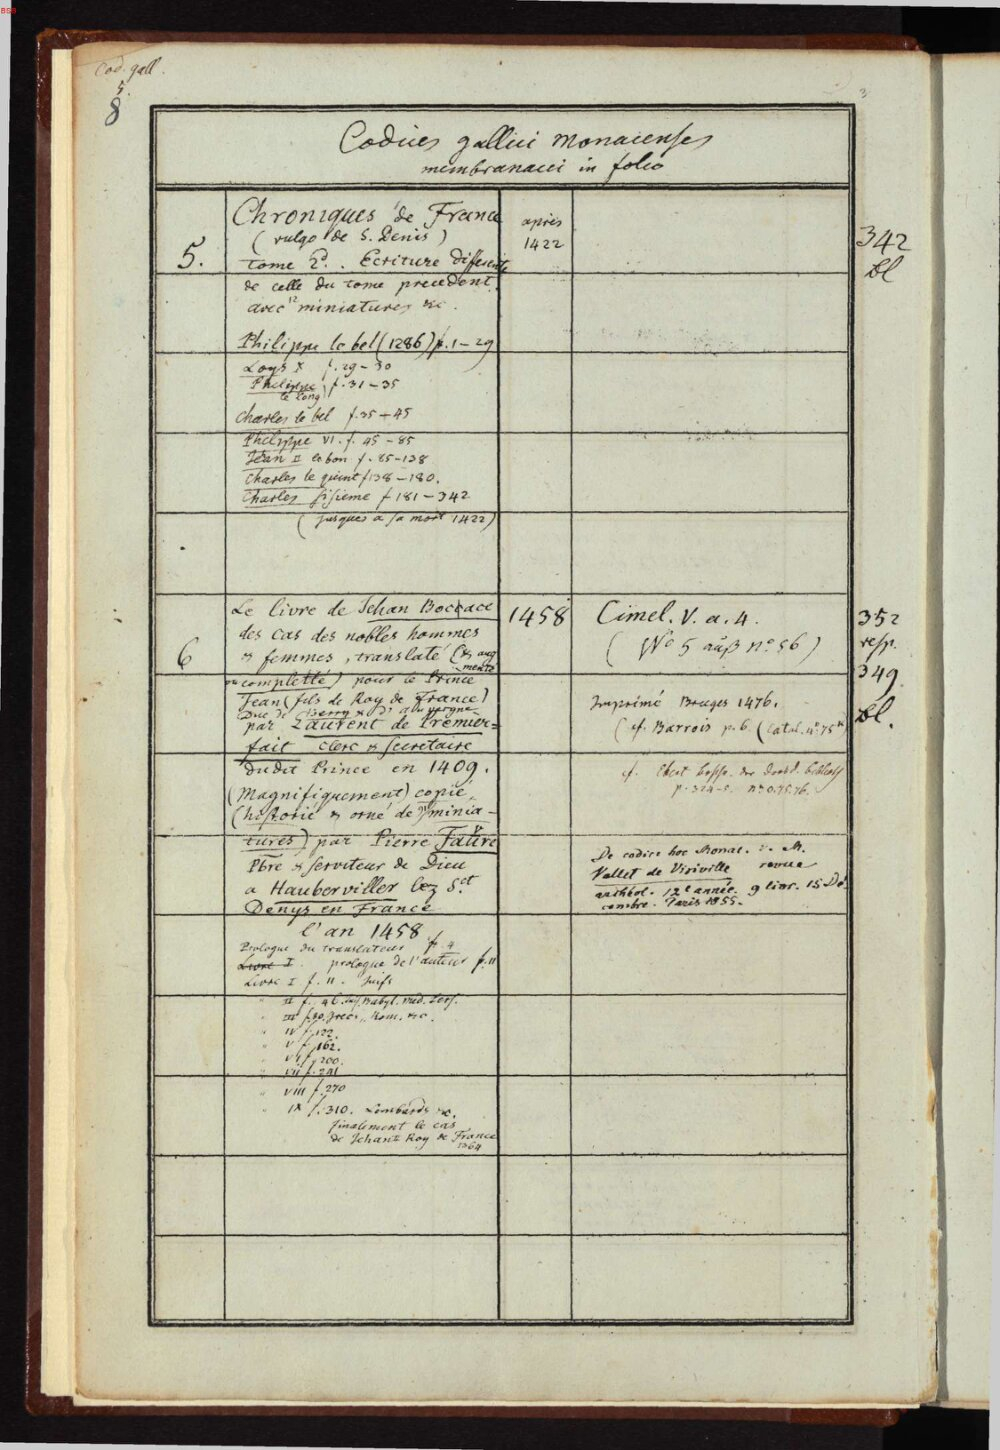 BSB
Cod. gall.
5.
8
3
Codices gallici monacenses
membranacei in folio
5.
Chroniques de France
(vulgo de S. Denis)
tome 2d. Ecriture differente
de celle du tome precedent.
avec 12 miniatures &c.
Philippe le bel (1286) f. 1-29
Loys X f. 29-30
Philippe f. 31-35
le long
Charles le bel f. 35-45
Philippe VI. f. 45-85
Jean II le bon f. 85-138
Charles le quint f 138-180.
Charles sisieme f 181-342
(jusques a sa mort 1422)
après
1422
342
Bl
6
Le livre de Jehan Boccace
des cas des nobles hommes
& femmes, translaté (& aug
menté
ou complette) pour le Prince
Jean (fils de Roy de France)
Duc de Berry & d'auvergne
par Laurent de Premier=
fait clerc & secretaire
du dit Prince en 1409.
(Magnifiquement) copié,
(historié & orné de minia-
tures) par Pierre Faure
Pbre & serviteur de Dieu
a Haubervillier lez Sct
Denys en France
l'an 1458
Prologue du translateur f. 4
Livre I. prologue de l'auteur f. 11
Livre I f. 11. Juifs
" II f. 46. Juif. Babyl. Med. Pers.
" III f. 80. Grecs, Rom. &c.
" IV f. 122.
" V f. 162.
" VI f. 200.
" VII f. 241
" VIII f. 270
" IX f. 310. Lombards &c.
finalement le cas
de Jehan Roy de France
1364
1458
Cimel. V. a. 4.
(No 5 auß no 56)
Imprimé Bruges 1476.
(cf. Barrois p. 6 (Catal. 4° 75
cf. Ebert
p. 324-5. no 75.76.
De codice hoc Monac. v. M.
Vallet de Viriville revue
archéol. 12e année. 9 livr. 15 Dé
cembre. Paris 1855.
352
resp.
349
Bl.